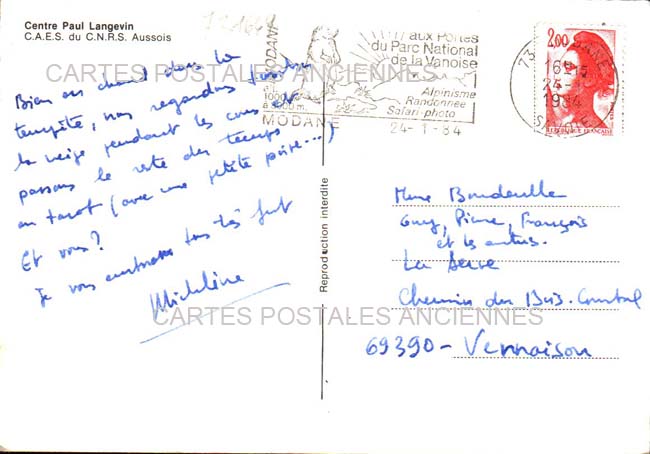 Centre Paul Langevin
C.A.E.S. du C.N.R.S. Aussois
Bien au chaud dans la
tempête, nous regardons tomber
la neige pendant les cours et
passons le reste du temps
au tarot (avec une petite poire...)
Et vous?
Je vous embrasse tous très fort
Micheline
Reproduction interdite
MODANE
1000
MODANE
aux Portes
du Parc National
de la Vanoise
Alpinisme
Randonnée
Safari-photo
24-1-84
2,00
REPUBLIQUE FRANÇAISE
73 MODANE
16H15
24-1
1984
SAVOIE
Mme Bondeulle
Guy, Pierre, François
et les autres.
La Serve
Chemin du Bas-Comtal
69390- Vernaison
CARTES POSTALES ANCIENNES
CARTES POSTALES ANCIENNES